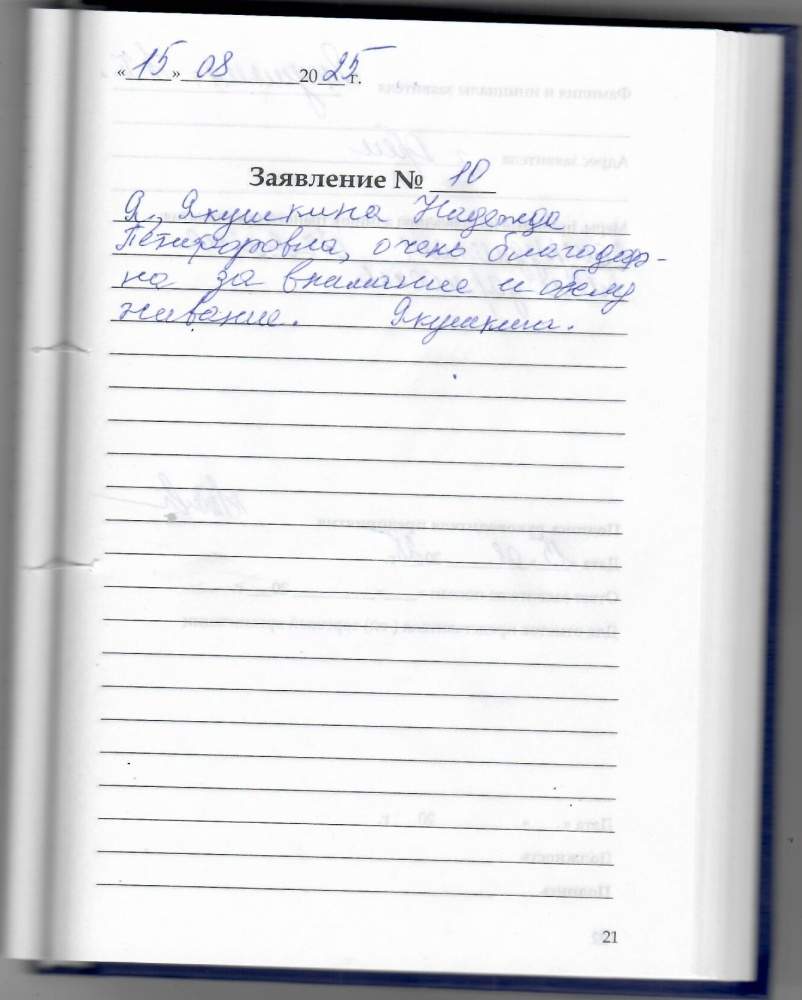 «15» 08 2025 г.
Заявление № 10
Я, Якушкина Надежда
Никифоровна, очень благодар-
на за внимание и обслу
живание. Якушкина.
21